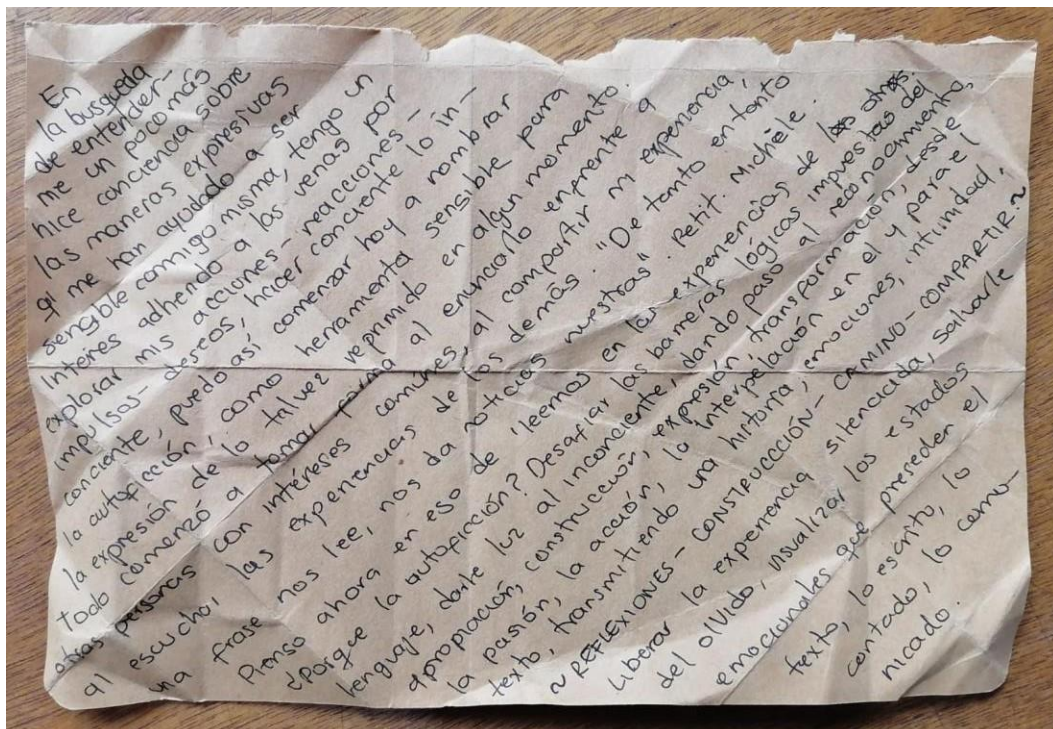 En
la busqueda
de entender-
me un poco más
hice conciencia sobre
las maneras expresivas
q' me han ayudado a ser
sensible conmigo misma, tengo un
interés adherido a las venas por
explorar mis acciones - reacciones -
impulsos - deseos, hacer conciente lo in-
conciente, puedo así comenzar hoy a nombrar
la autoficción, como herramienta sensible para
la expresión de lo talvez reprimido en algun momento.
todo comenzó a tomar forma al enunciarlo enprente a
otras personas con intéreses comúnes, al compartir mi experiencia,
al escuchar las experencias de los demás. "De tanto en tanto
una frase nos lee, nos da noticias nuestras". Petit. Michèle.
Pienso ahora en eso de "leemos en las experiencias de los otros.
¿Porque la autoficción? Desafiar las barreras lógicas impuestas del
lenguaje, darle luz al inconciente, dando paso al reconocimiento,
apropiación, construcción, expresión, transformación, desde
la pasión, la acción, la interpelación en el y para el
texto, transmitiendo una historia, emociones, intimidad.
~ REFLEXIONES - CONSTRUCCIÓN - CAMINO - COMPARTIR ~
Liberar la experiencia silenciada, salvarle
del olvido, visualizar los estados
emocionales que preseden el
texto, lo escrito, lo
contado, lo comu-
nicado.